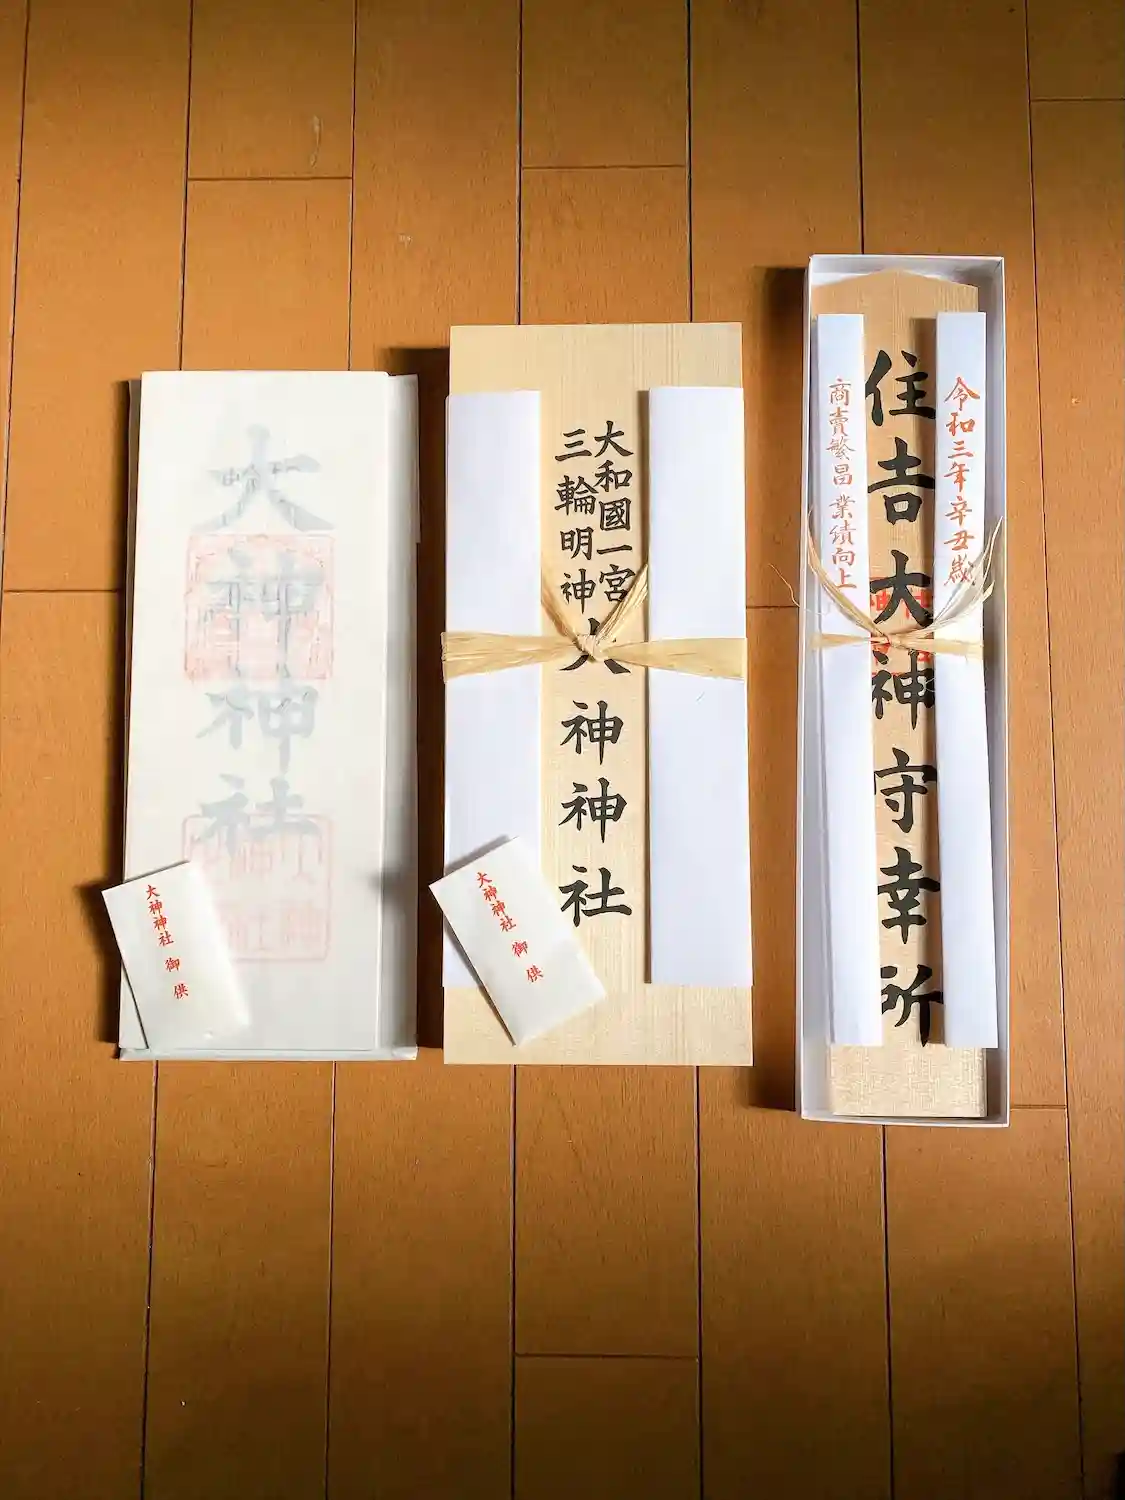 大神神社
大神神社 御供
大和國一宮
三輪明神
大神神社
大神神社 御供
令和三年辛丑歳
住吉大神守幸所
商賣繁昌 業績向上